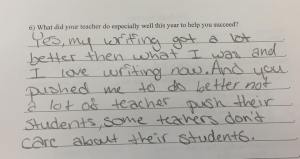 6) What did your teacher do especially well this year to help you succeed?
Yes, my writing got a lot
better then what I was and
I love writing now. And you
pushed me to do better not
a lot of teacher push their
students, some teahers don't
care about their students.